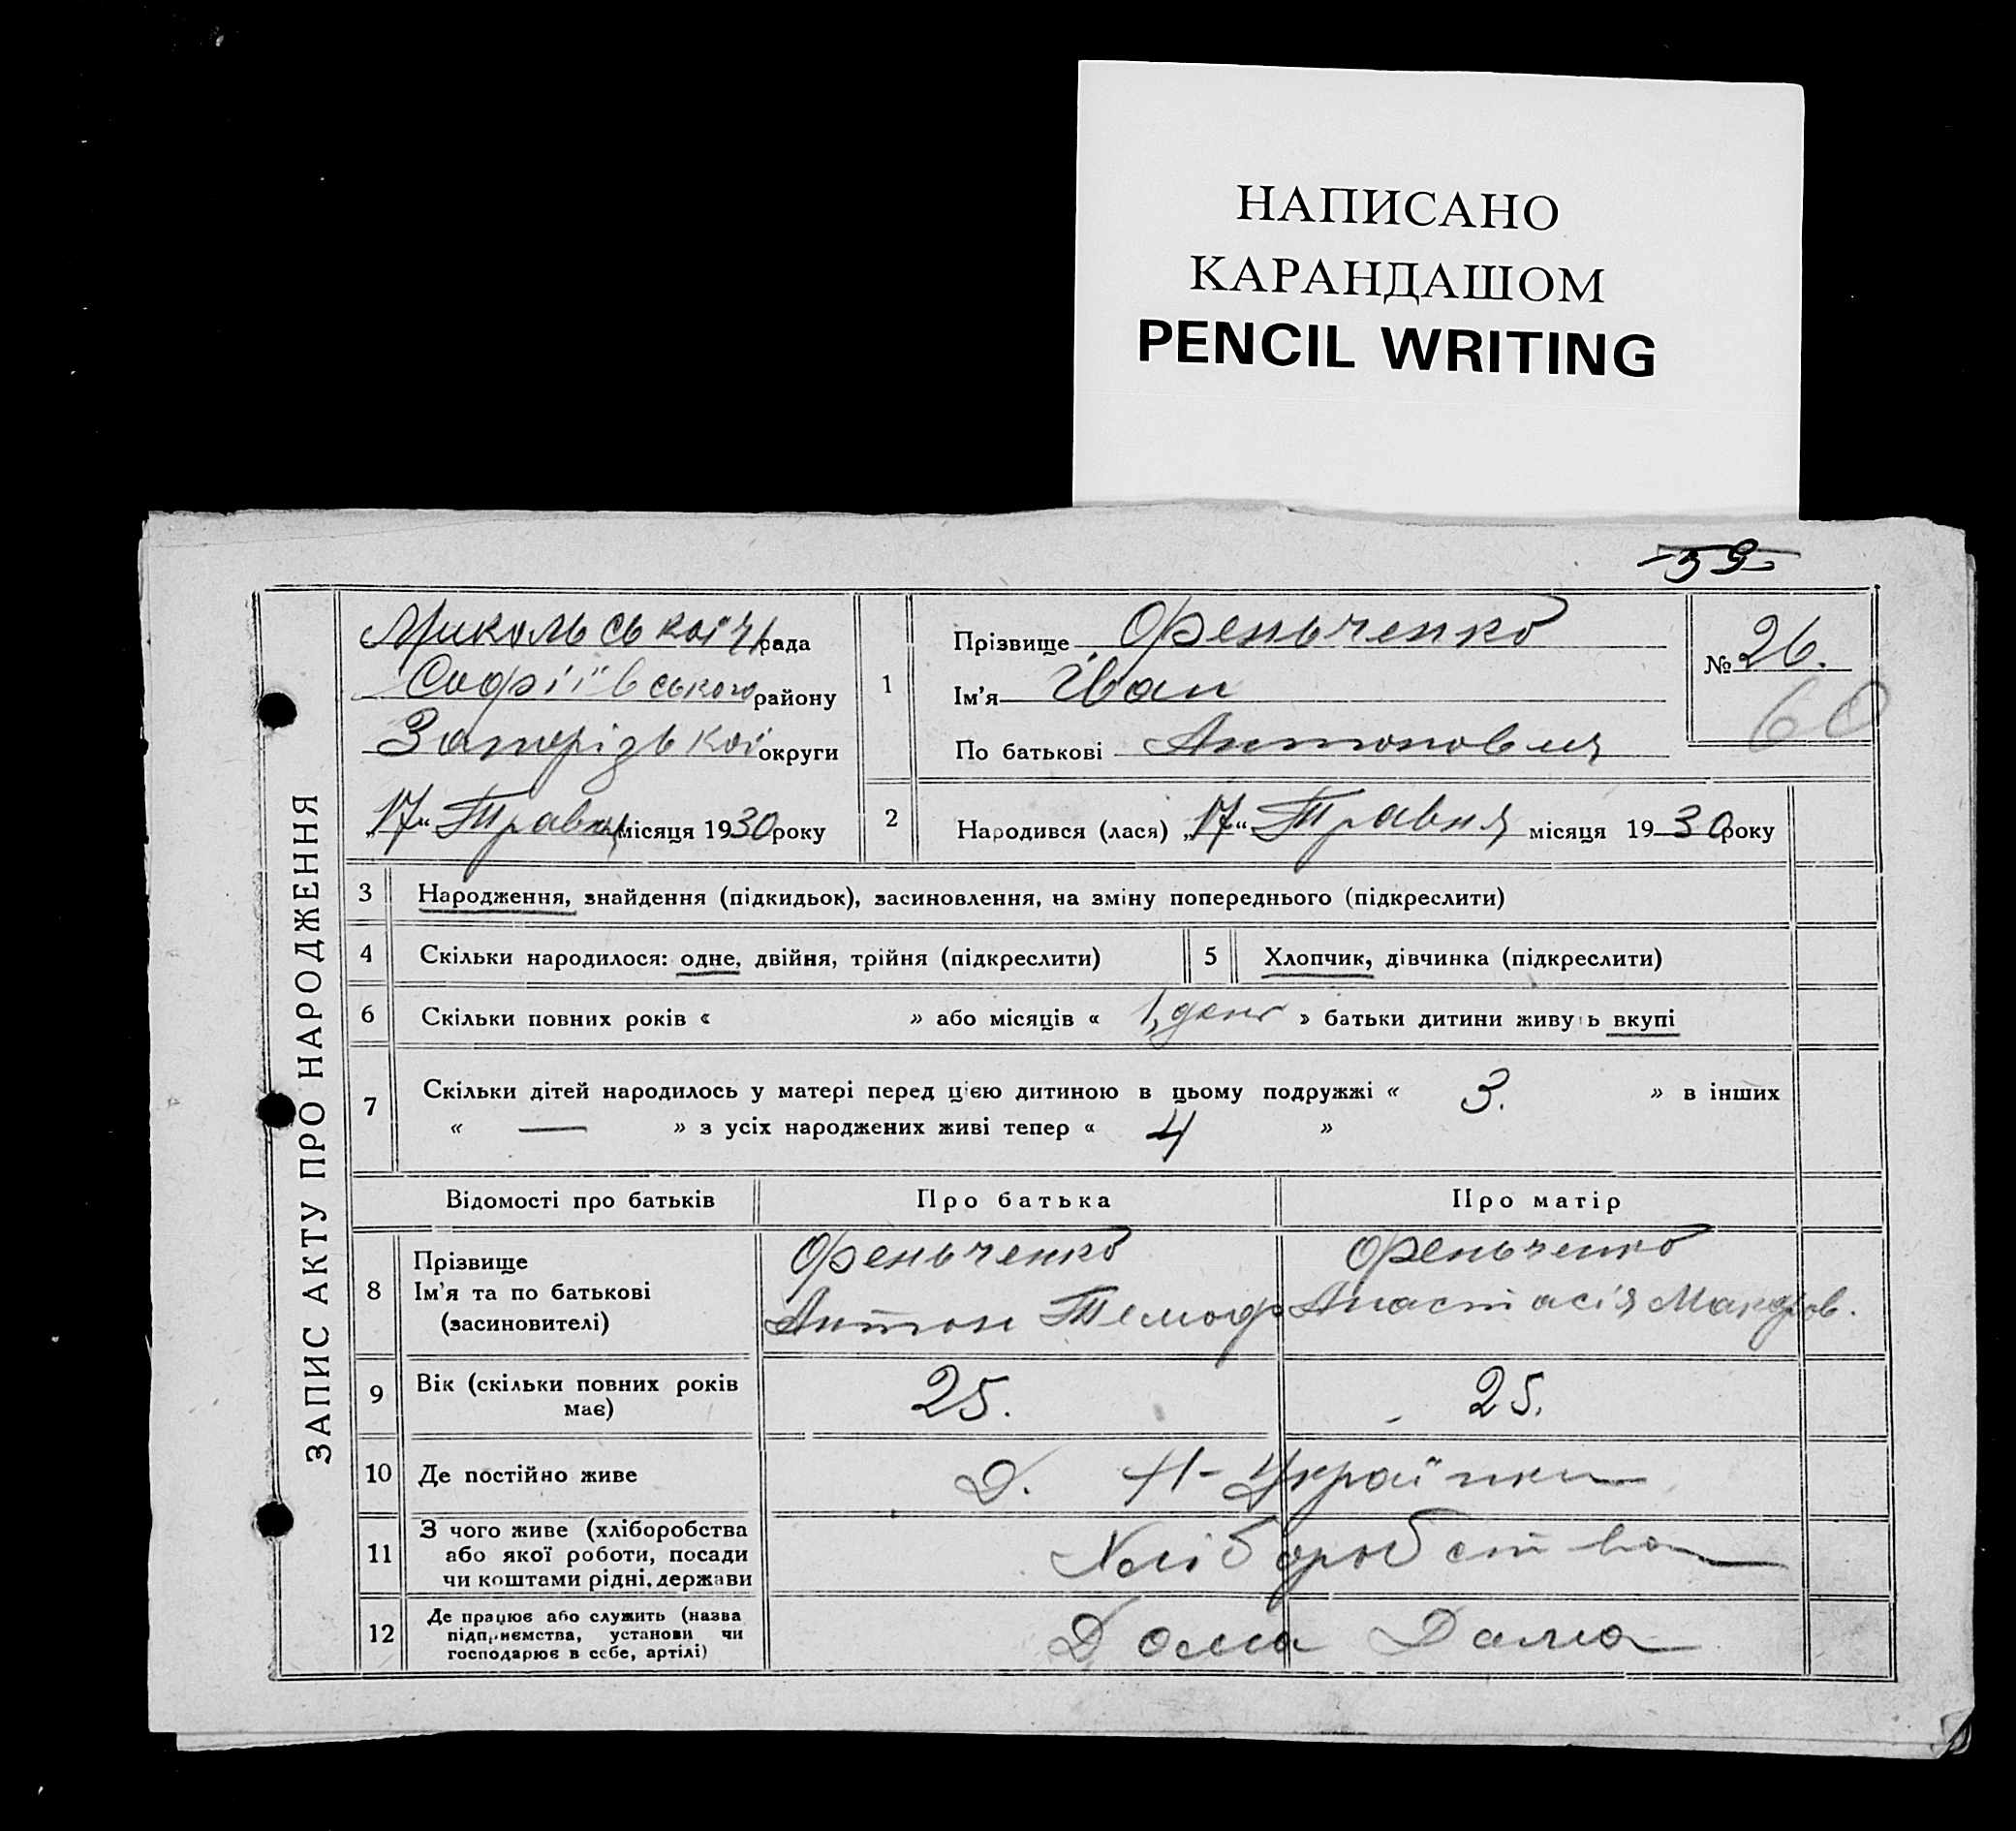 НАПИСАНО
КАРАНДАШОМ
PENCIL WRITING
59
ЗАПИС АКТУ ПРО НАРОДЖЕННЯ
рада
Софіївського району
Запорізької округи
„17“ Травня місяця 1930 року
1
Прізвище Феньченко
Ім'я Іван
По батькові Антонович
№ 26.
60
2
Народився (лася) „17“ Травня місяця 1930 року
3 Народження, знайдення (підкидьок), засиновлення, на зміну попереднього (підкреслити)
4 Скільки народилося: одне, двійня, трійня (підкреслити)
5 Хлопчик, дівчинка (підкреслити)
6 Скільки повних років « » або місяців « 1, » батьки дитини живуть вкупі
7 Скільки дітей народилось у матері перед цією дитиною в цьому подружжі « 3. » в інших
« — » з усіх народжених живі тепер « 4 »
Відомості про батьків Про батька Про матір
8 Прізвище
Ім'я та по батькові
(засиновителі)
Феньченко
Антон Темоф
Феньченко
Анастасія
9 Вік (скільки повних років
має)
25. 25.
10 Де постійно живе Д. Н-Українка
11 З чого живе (хліборобства
або якої роботи, посади
чи коштами рідні, держави
Хліборобства
12 Де працює або служить (назва
підприємства, установи чи
господарює в себе, артілі)
Дома Дома